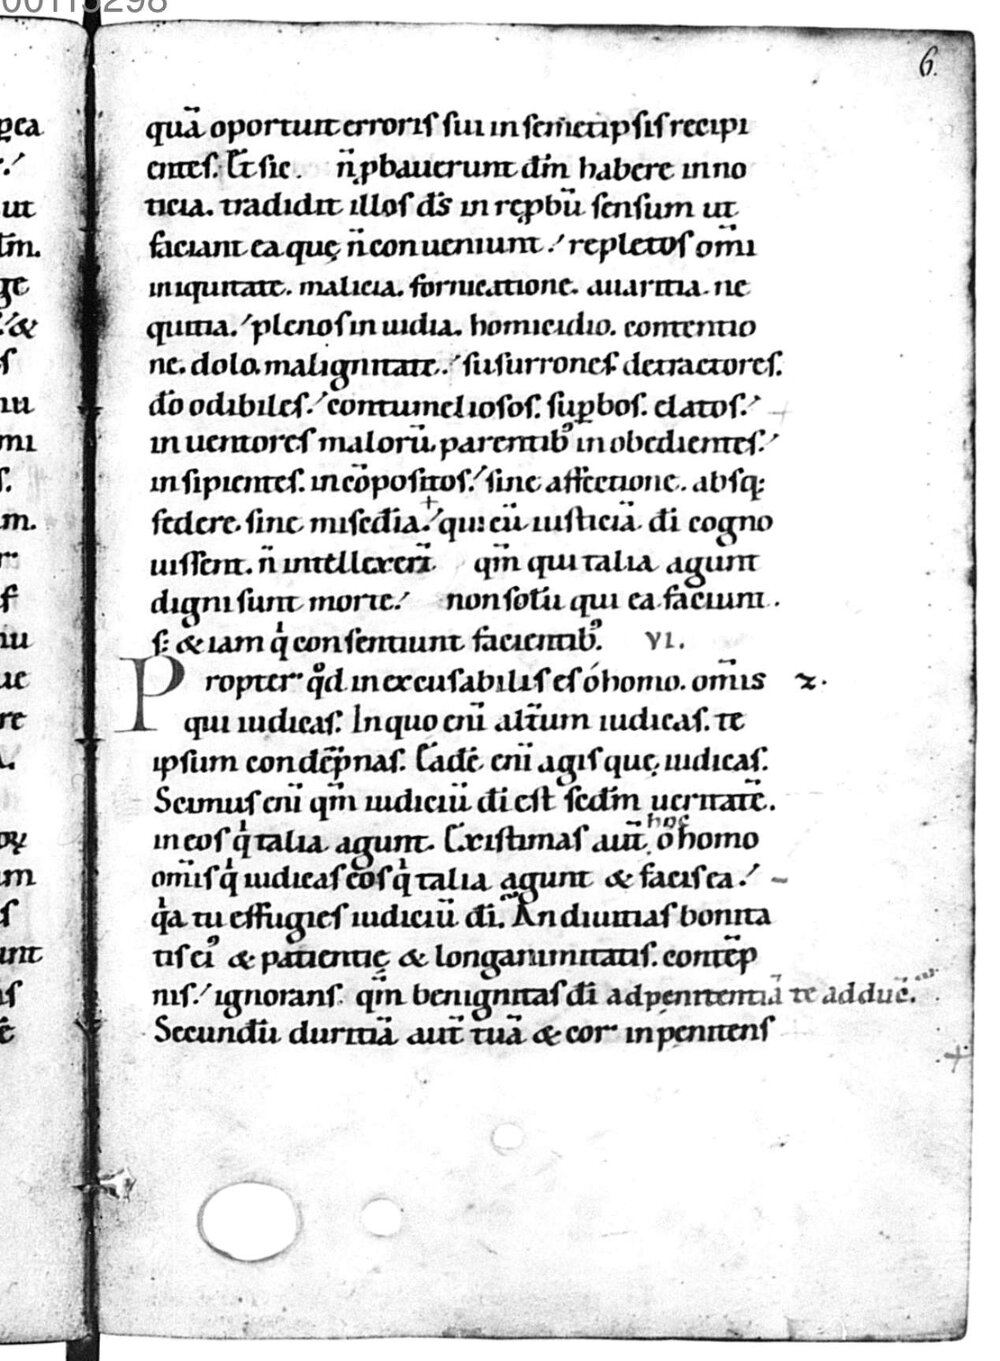 00115298
6.
quā oportuit erroris sui in semetipsis recipi
entes. Et sic. n̄ pbauerunt dm̄ habere in no
ticia. tradidit illos ds̄ in rępbū sensum ut
faciant ea quę n̄ conueniunt. repletos om̄i
iniquitate. malicia. fornicatione. auaritia. ne
quitia. plenos inuidia. homicidio. contentio
ne. dolo. malignitate. susurrones. detractores.
dō odibiles. contumeliosos. supbos. elatos.
inuentores malorū. parentib; inobedientes.
insipientes. incōpositos. sine affectione. absq;
federe. sine miscđia. qui cū iusticiā di cogno
uissent. n̄ intellexert̄ qm̄ qui talia agunt
digni sunt morte. non solū qui ea faciunt.
s; & iam q̍ consentiunt facientib;. VI.
Propter qd inexcusabilis es ó homo. om̄is 2.
qui iudicas. In quo eni altm̄ iudicas. te
ipsum condēpnas. Eadē eni agis quę iudicas.
Scimus eni qm̄ iudiciū di est scdm̄ ueritatē.
in eos q̍ talia agunt. Existimas aut̄ hoc ó homo
om̄is q̍ iudicas eos q̍ talia agunt & facis ea.
qa tu effugies iudiciū di. An diuitias bonita
tis ei; & patientię & longanimitatis. contēp
nis. ignorans. qm̄ benignitas di ad penitentiā te adduc̄.
Secundū duritiā aut̄ tuā & cor inpenitens